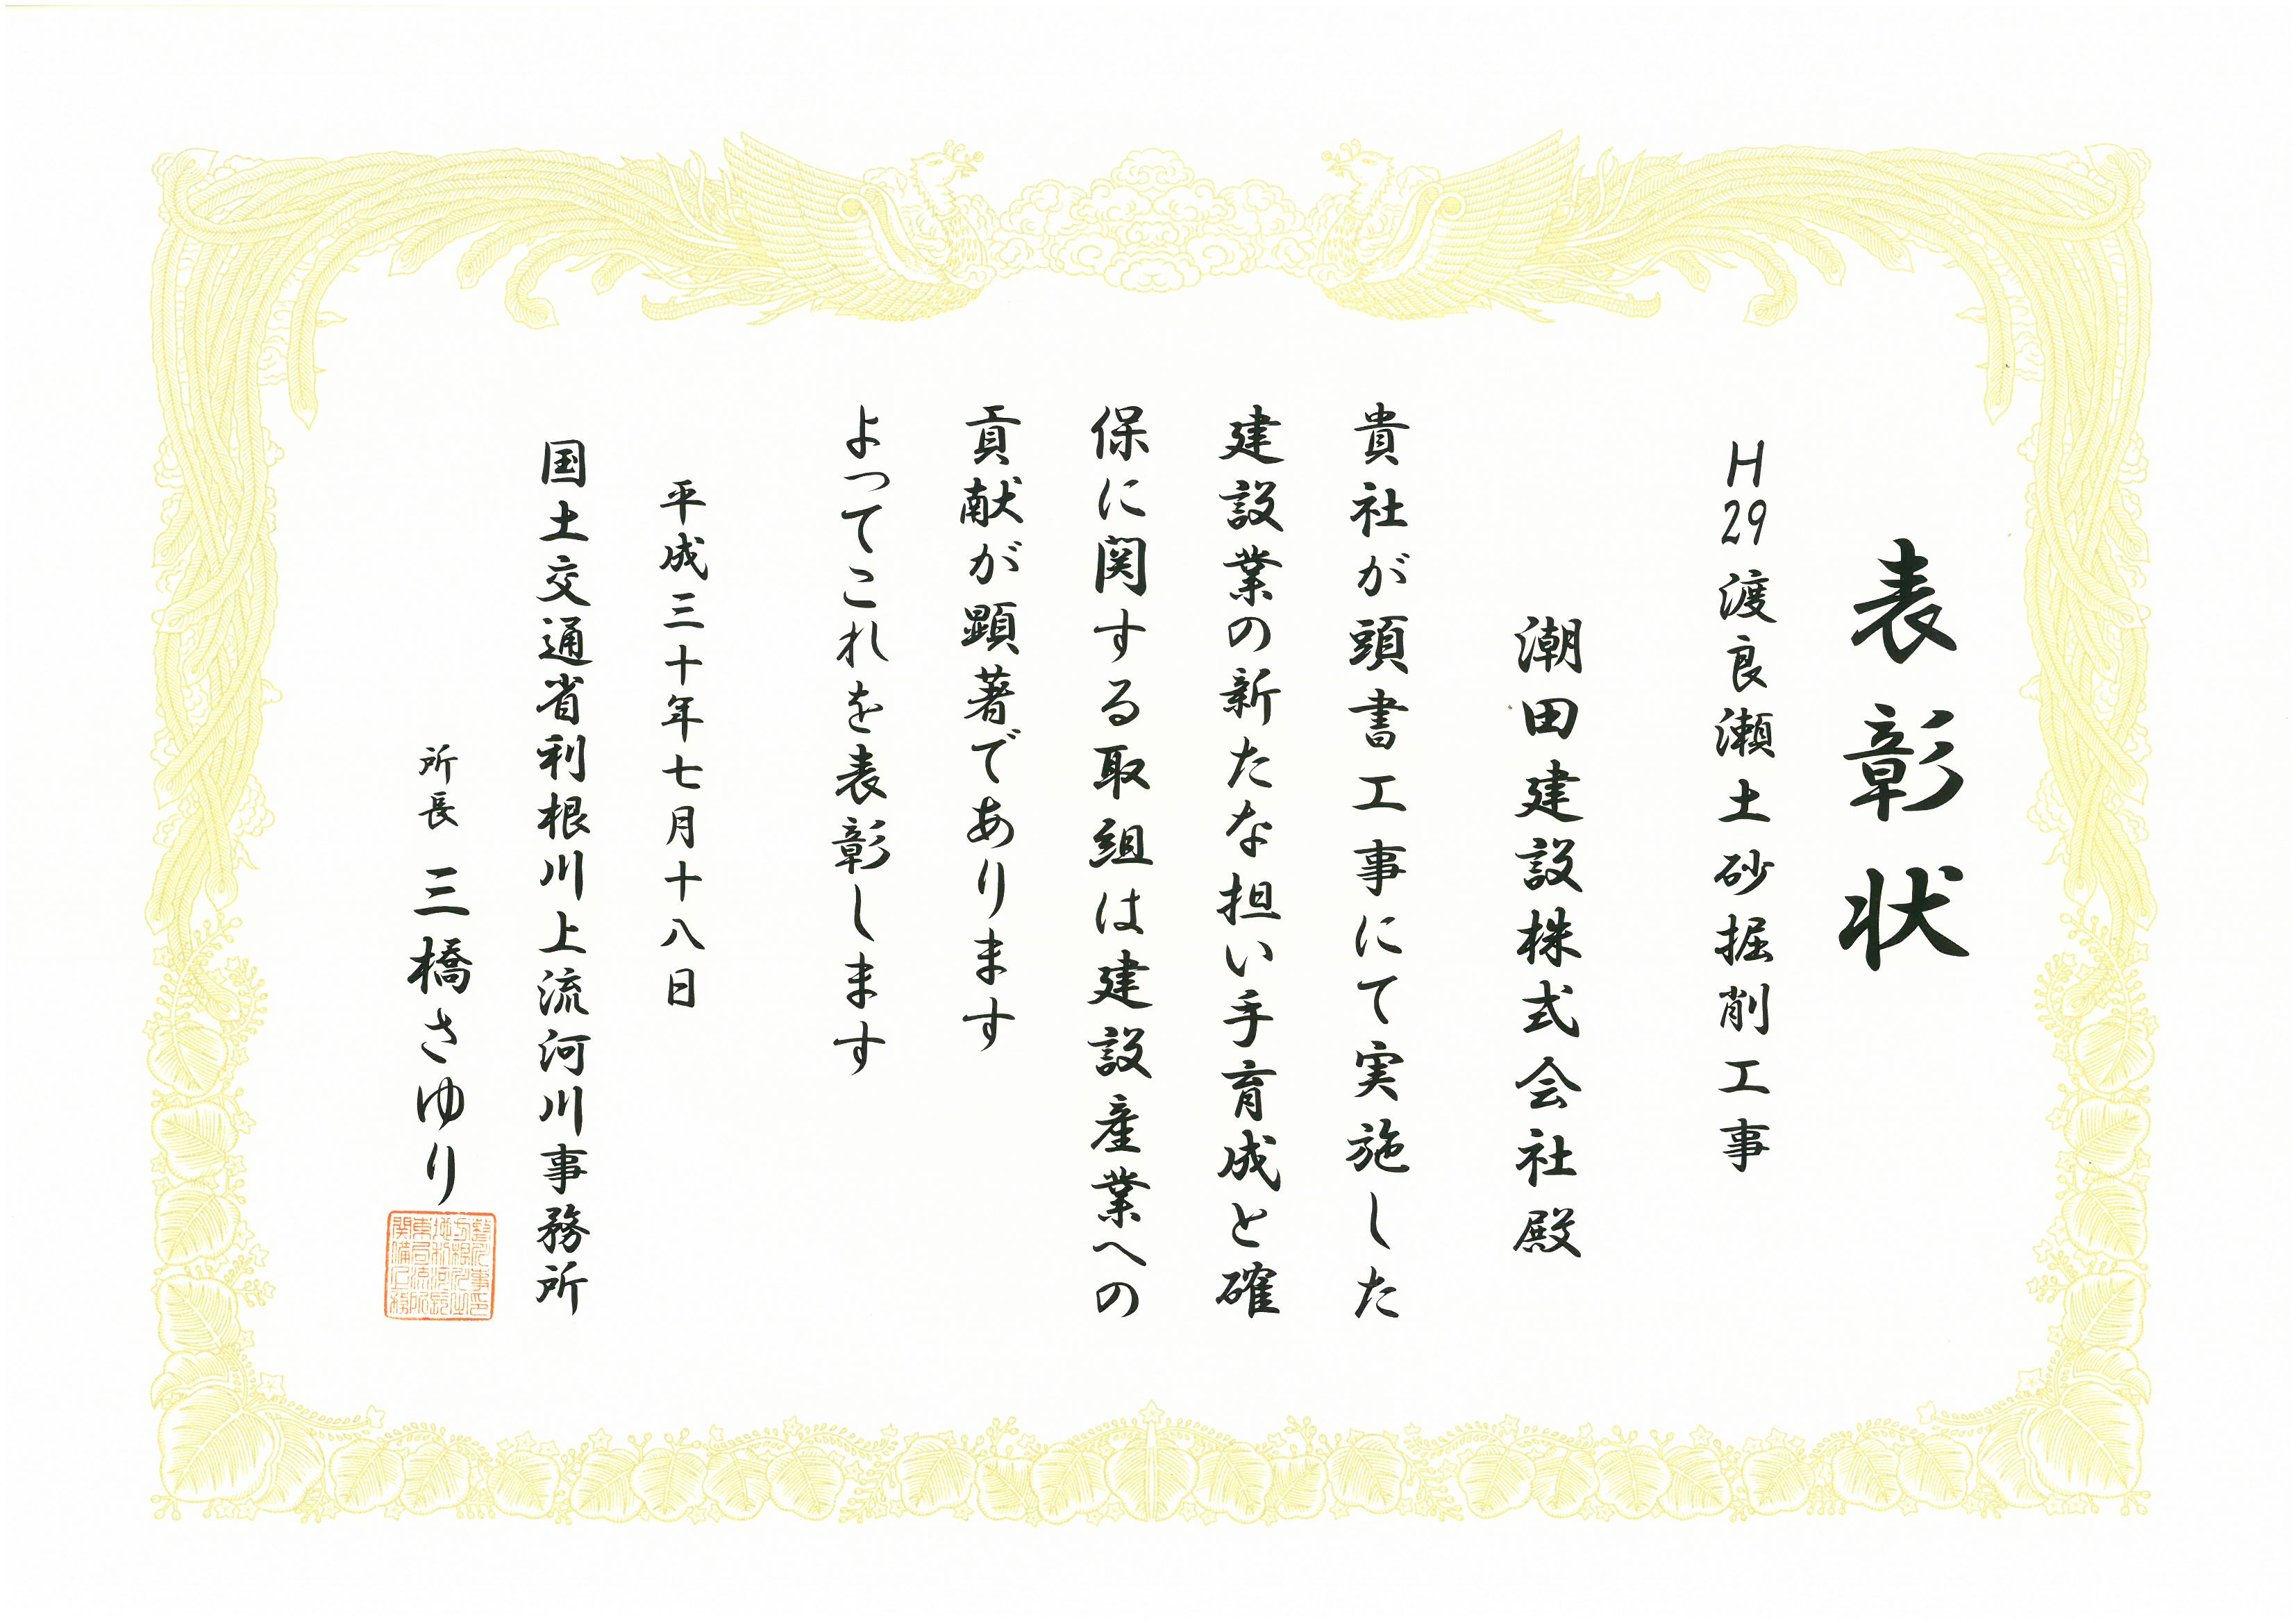 表彰状
H29渡良瀬土砂掘削工事
潮田建設株式会社殿
貴社が頭書工事にて実施した
建設業の新たな担い手育成と確
保に関する取組は建設産業への
貢献が顕著であります
よってこれを表彰します
平成三十年七月十八日
国土交通省利根川上流河川事務所
所長 三橋さゆり